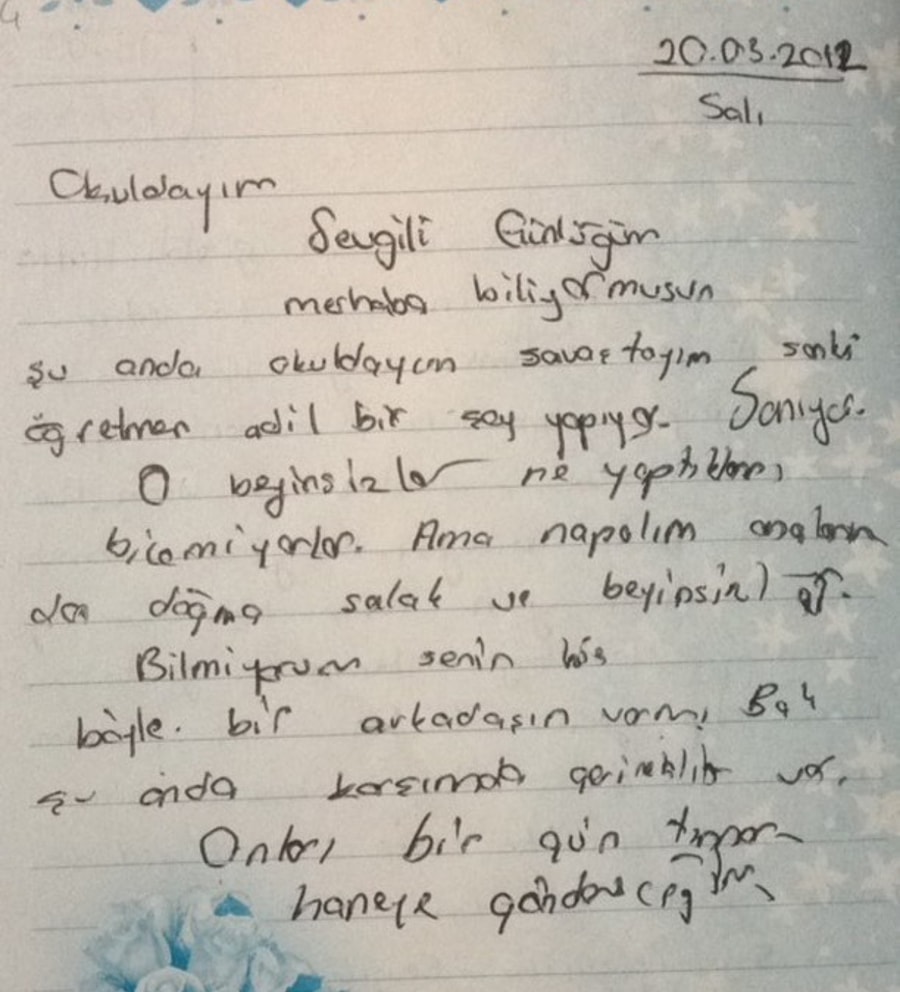 20.03.2012
Salı
Okuldayım
Sevgili Günlüğüm
merhaba biliyormusun
şu anda okuldayım savaştayım sanki
öğretmen adil bir şey yapıyor. Sanıyor.
O beyinsizler ne yaptıklarını
bilemiyorlar. Ama napalım anaların
dan doğma salak ve beyinsizler.
Bilmiyorum senin hiç
böyle. bir arkadaşın varmı Bak
şu anda karşımda var.
Onları bir gün tımar
haneye göndericeğim